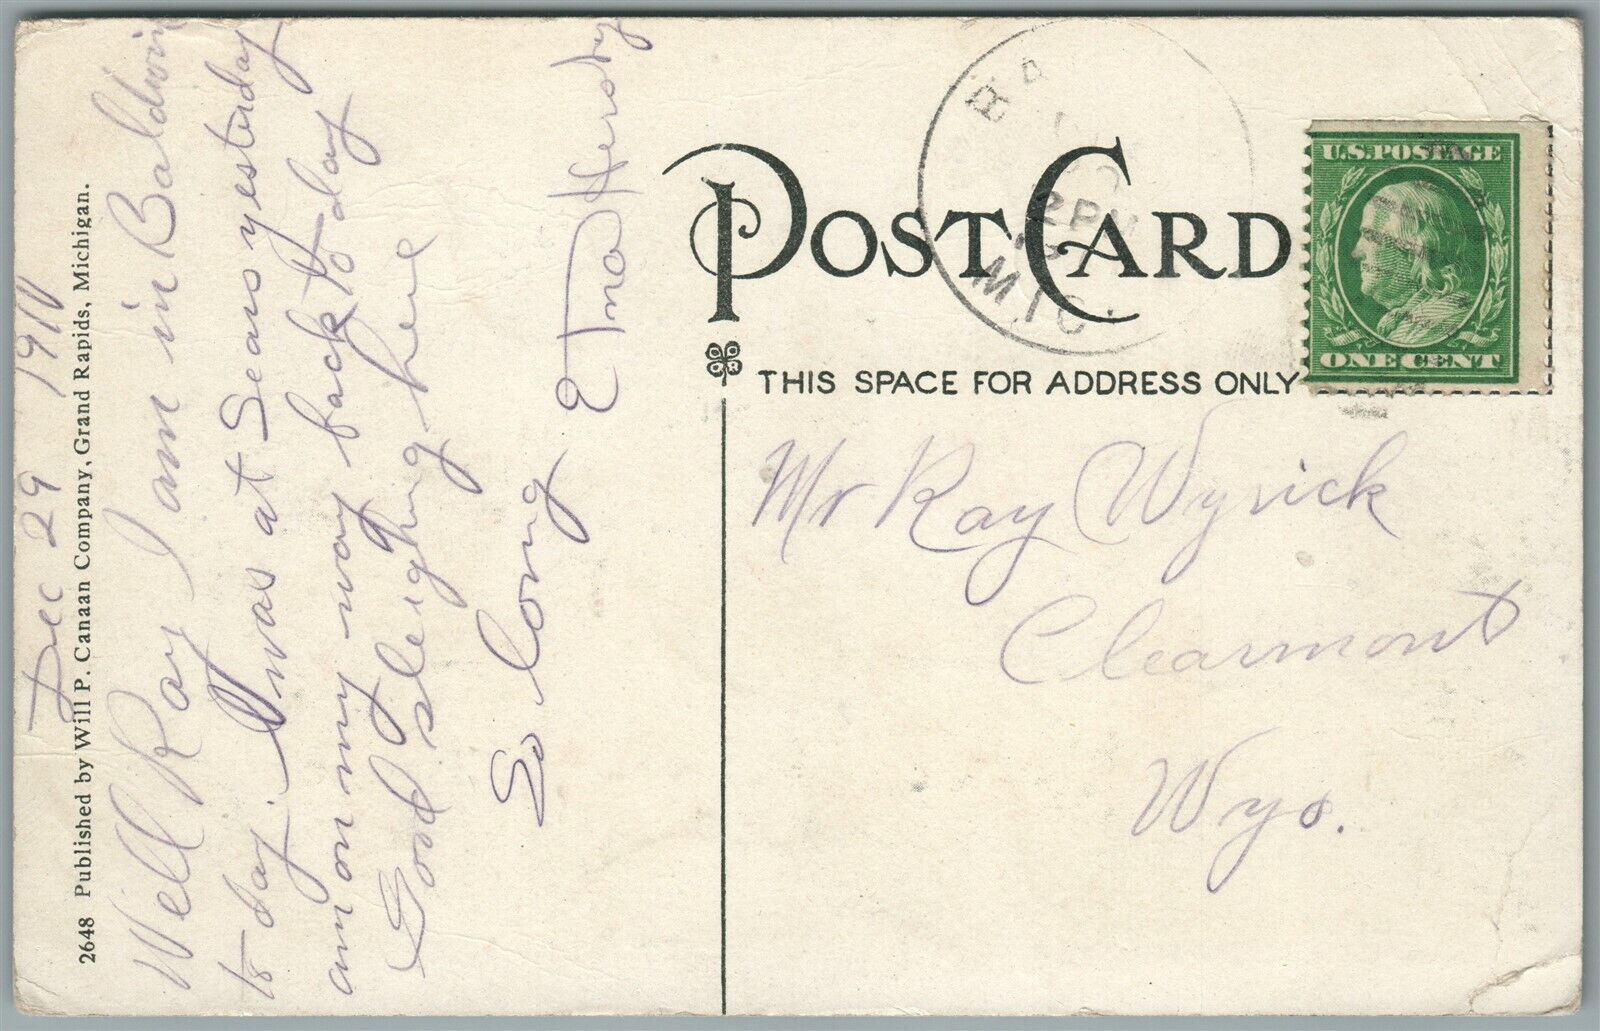 Dec 29 1910
Well Ray I am in Baldwin
to day. I was at Sears yesterday
am on my way back to day
Good sleighing here
So long
2648 Published by Will P. Canaan Company, Grand Rapids, Michigan.
POST CARD
THIS SPACE FOR ADDRESS ONLY
2 PM
MIC.
U.S. POSTAGE
ONE CENT
Mr Ray Wyrick
Clearmont
Wyo.